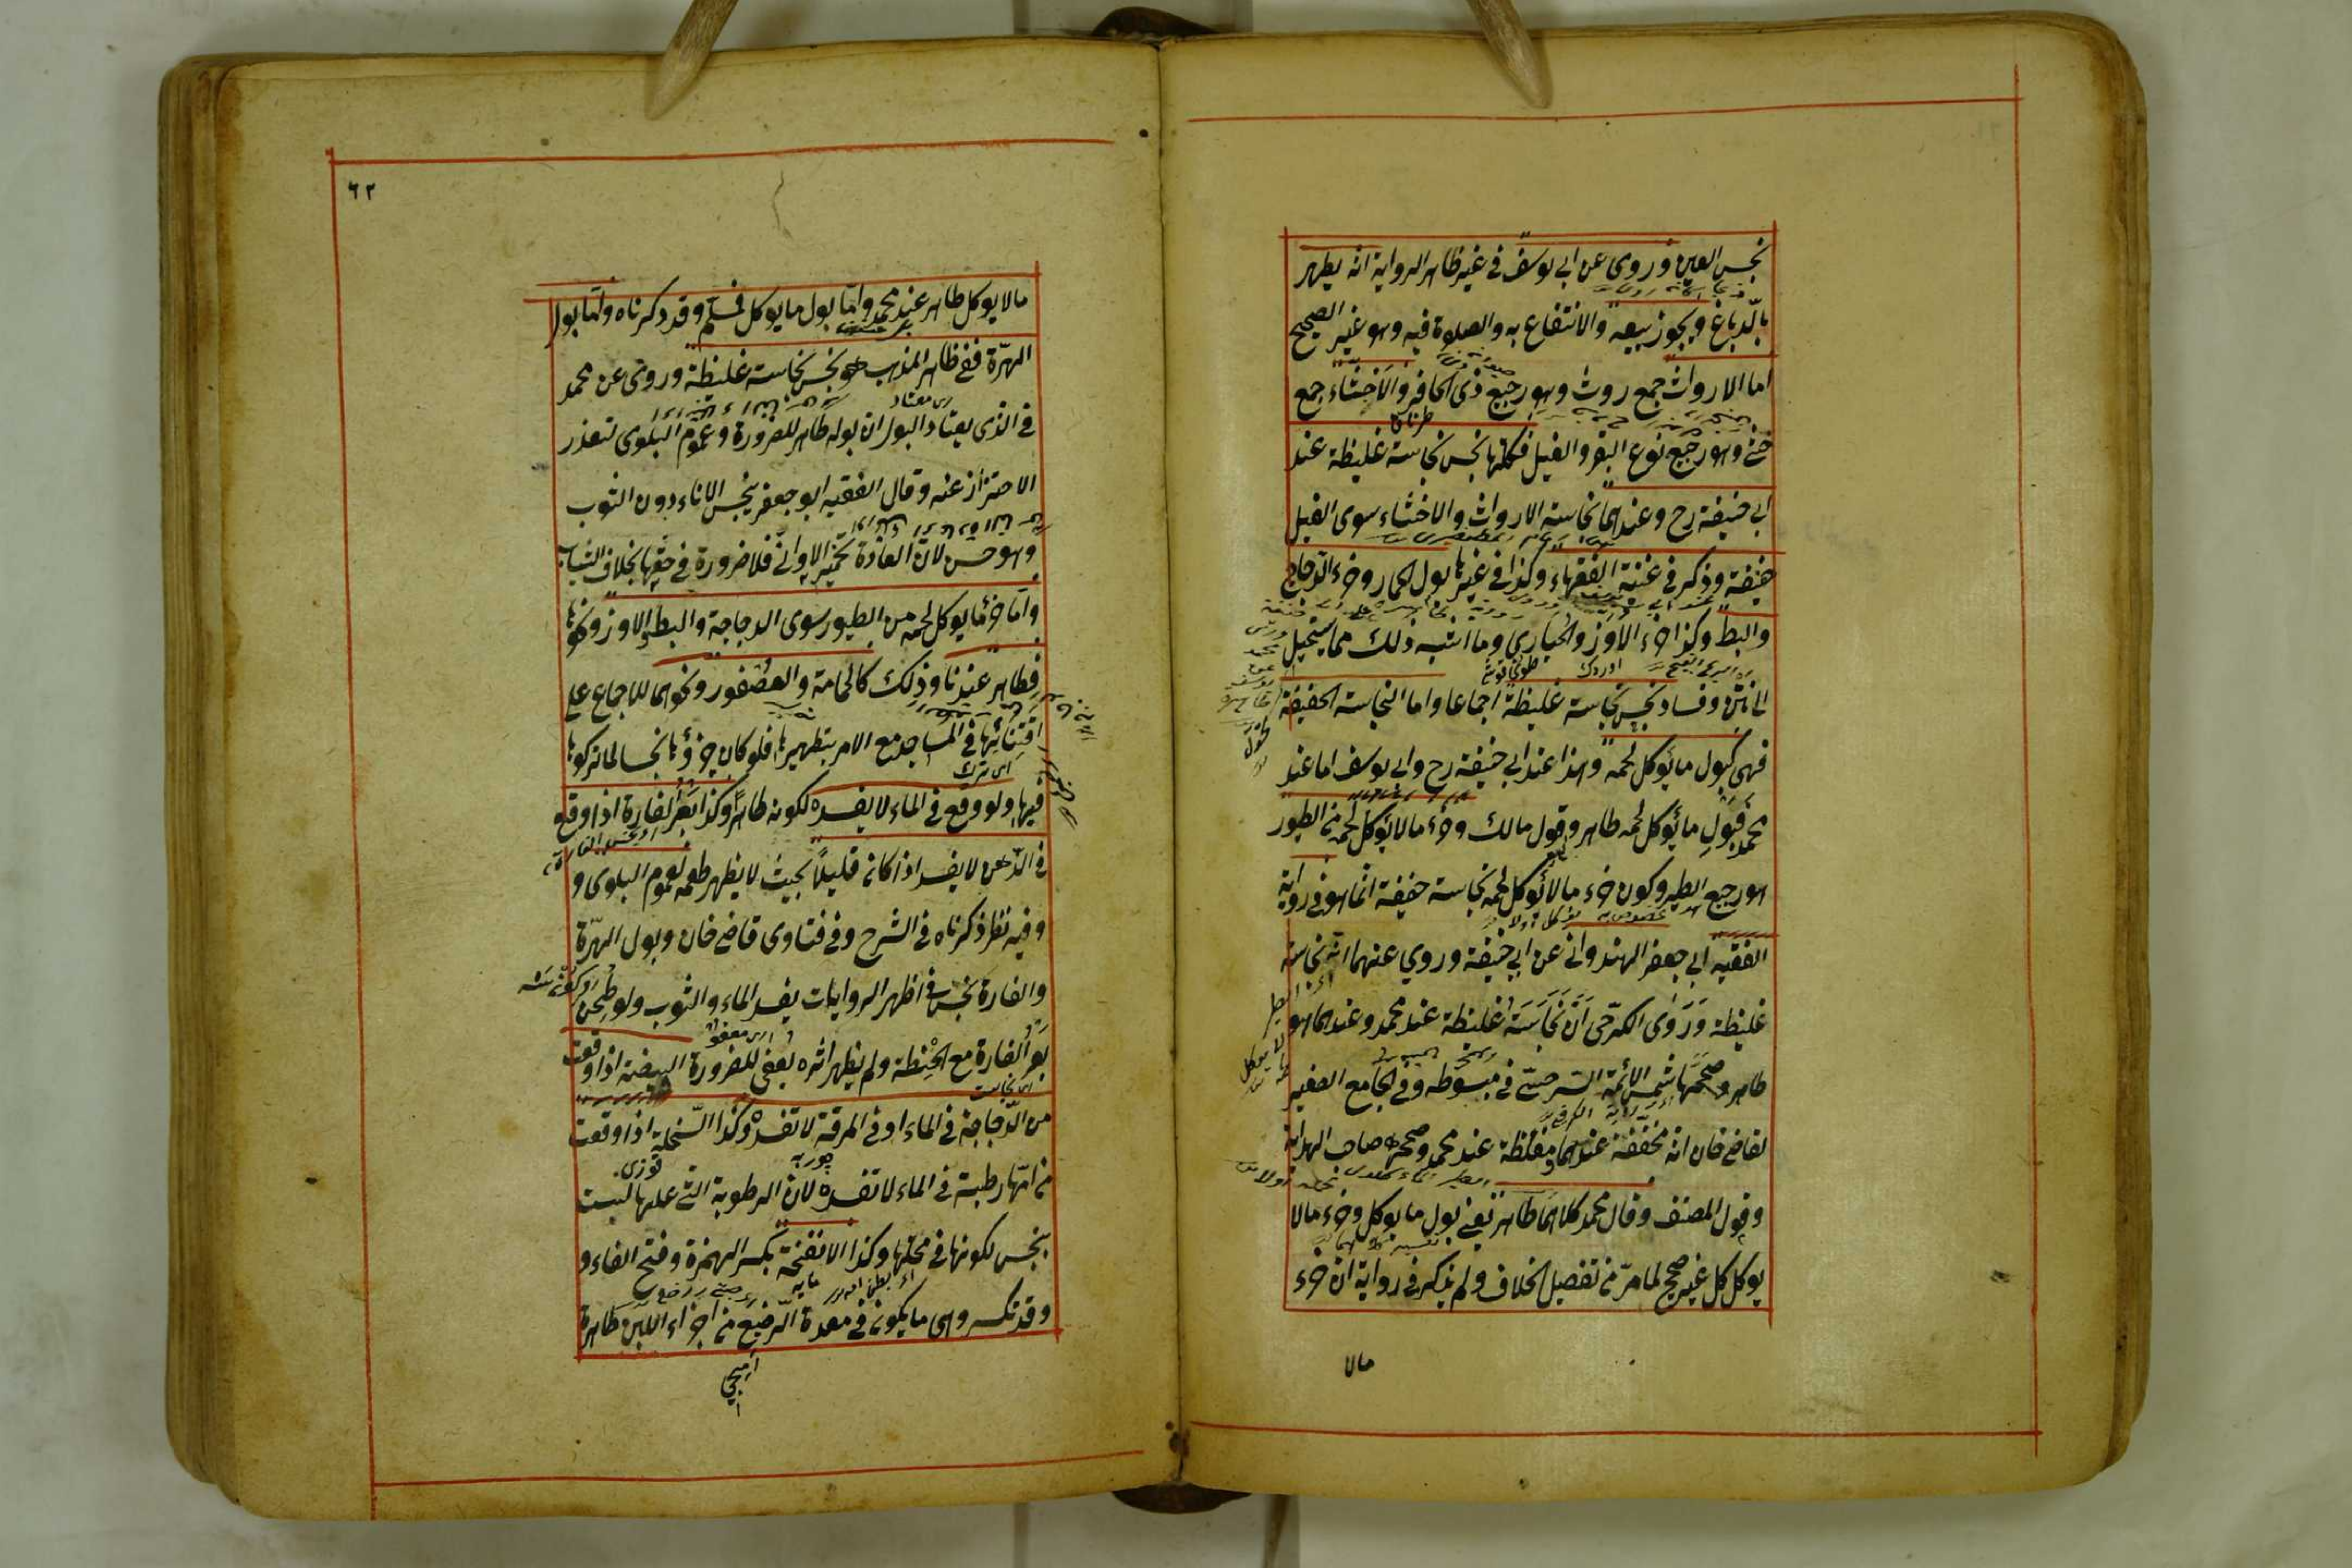 نجس العين وروى عن ابى يوسف فى غير ظاهر الرواية انه يطهر
بالدباغ ويجوز بيعه والانتفاع به والصلوة فيه وهو غير الصحيح
اما الارواث جمع روث وهو رجيع ذى الحافر والاخثاء جمع
خثى وهو رجيع نوع البقر والفيل فكلها نجس نجاسة غليظة عند
ابى حنيفة رح وعندهما نجاسة الارواث والاخثاء سوى الفيل
خفيفة وذكر فى غنية الفقهاء وكذا فى غيرها بول الحمار وخرء الدجاج
والبط وكذا خرء الاوز والحبارى وما اشبه ذلك مما يستحيل
الى نتن وفساد نجس نجاسة غليظة اجماعا واما النجاسة الخفيفة
فهى كبول ما يؤكل لحمه وهذا عند ابى حنيفة رح وابى يوسف اما عند
محمد فبول ما يؤكل لحمه طاهر وقول مالك وخرء ما لا يؤكل لحمه من الطيور
هو رجيع الطير وكون خرء ما لا يؤكل لحمه نجاسة خفيفة انما هو فى رواية
الفقيه ابى جعفر الهندوانى عن ابى حنيفة وروي عنهما انه نجاسة
غليظة وروى الكرخى ان نجاسته غليظة عند محمد وعندهما هو
طاهر وصححها شمس الائمة السرخسى فى مبسوطه وفى الجامع الصغير
لقاضى خان انه مخففة عندهما ومغلظة عند محمد وصححه صاحب الهداية
وقول المصنف وقال محمد كلاهما طاهر يعنى بول ما يؤكل وخرء مالا
يؤكل كل غير صحيح لما مر من تفصيل الخلاف ولم يذكر فى رواية ان خرء
مالا
٦٢
مالا يوكل طاهر عند محمد واما بول ما يوكل فمسلم وقد ذكرناه واما بول
الهرة ففى ظاهر المذهب هو نجس نجاسة غليظة وروى عن محمد
فى الذى يعتاد البول ان بوله طاهر للضرورة وعموم البلوى لتعذر
الاحتراز عنه وقال الفقيه ابو جعفر ينجس الاناء دون الثوب
وهو حسن لان العادة تخمير الاوانى فلا ضرورة فى حقها بخلاف الثياب
واما خرء ما يوكل لحمه من الطيور سوى الدجاجة والبط والاوز ونحوها
فطاهر عندنا وذلك كالحمامة والعصفور ونحوهما للاجماع على
اقتنائها فى المساجد مع الامر بتطهيرها فلو كان خرؤها نجسا لما تركوها
فيها ولو وقع فى الماء لا يفسده لكونه طاهرا وكذا بعر الفارة اذا وقع
فى الدهن لا يفسد اذا كان قليلا بحيث لا يظهر طعمه لعموم البلوى و
وفيه نظر ذكرناه فى الشرح وفى فتاوى قاضى خان وبول الهرة
والفارة نجس فى اظهر الروايات يفسد الماء والثوب ولو طحن
بعر الفارة مع الحنطة ولم يظهر اثره يعفى للضرورة البيضة اذا وقعت
من الدجاجة فى الماء او فى المرقة لا تفسده وكذا السخلة اذا وقعت
من امها رطبة فى الماء لا تفسده لان الرطوبة التى عليها ليست
بنجس لكونها فى محلها وكذا الانفخة بكسر الهمزة وفتح الفاء و
وقد تكسر وهى ما يكون فى معدة الرضيع من اجزاء اللبن طاهرة